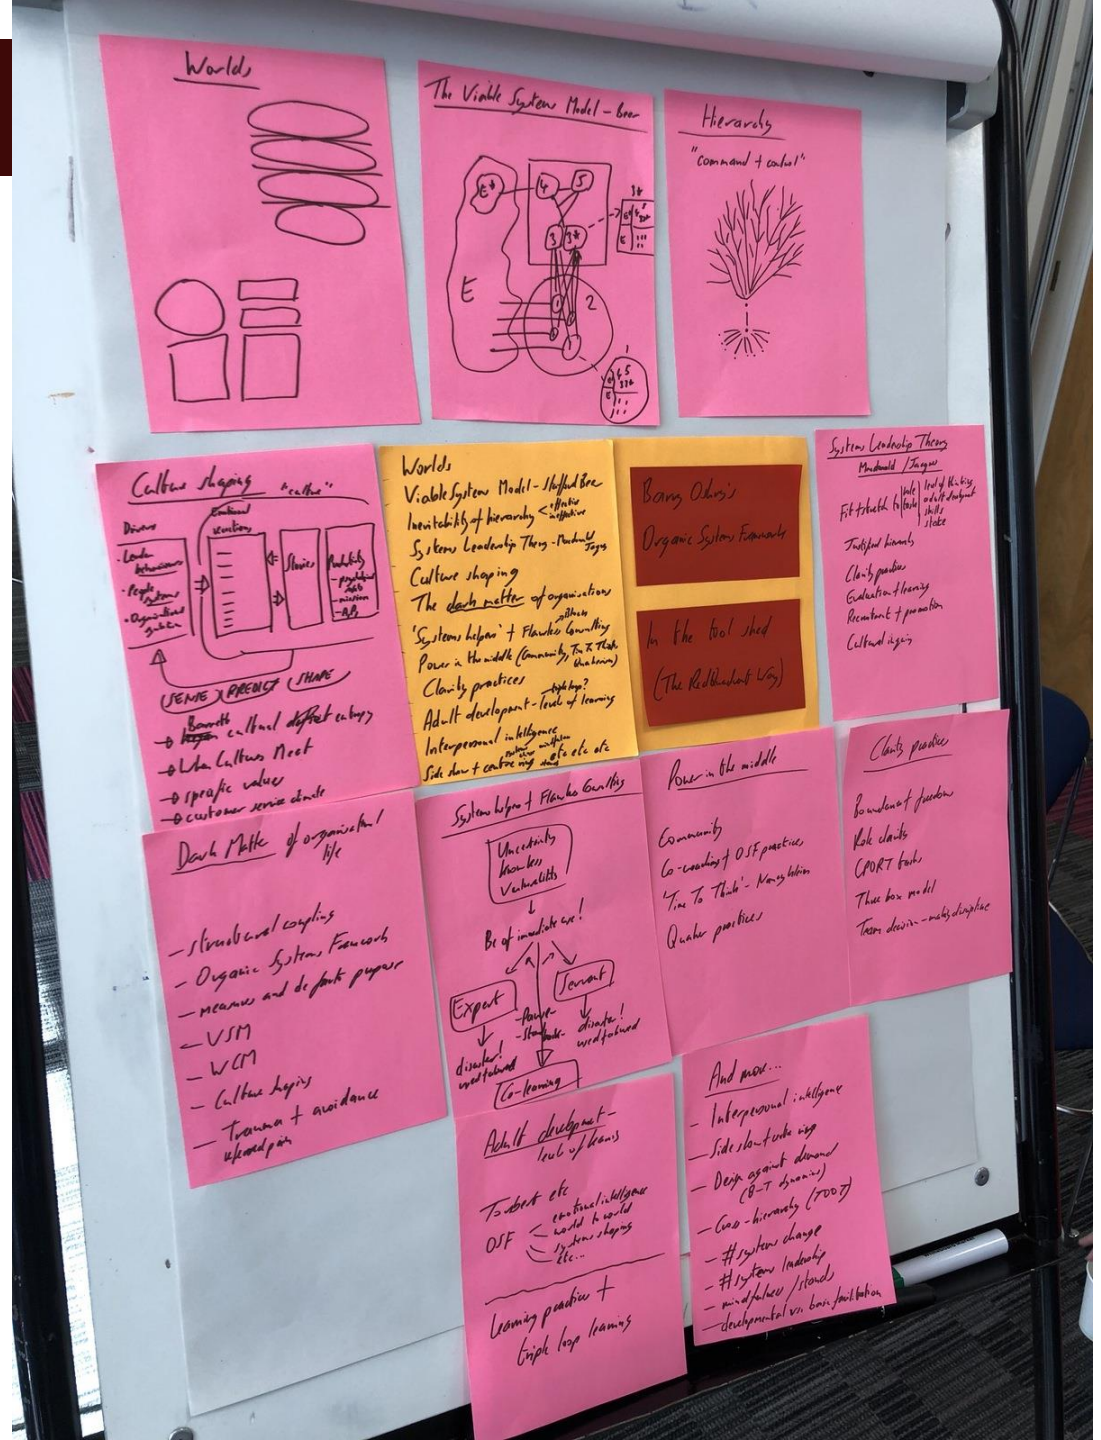 Worlds
The Viable Systems Model - Beer
E*
4
5
3
3*
E
2
1
3*
1
Hierarchy
"command + control"
Culture shaping
"culture"
Drivers
- Leader
behaviours
- People
systems
- Organisations
Emotional
reactions
Stories
Productivity
- mission
SENSE
PREDICT
SHAPE
→ Barrett cultural entropy
→ When Cultures Meet
→ specific values
→ customer service climate
Worlds
Viable Systems Model - Stafford Beer
Inevitability of hierarchy < effective
ineffective
Systems Leadership Theory - Macdonald
Jaques
Culture shaping
The dark matter of organisations
'Systems helpers' + Flawless Consulting
Power in the middle (Community, Time To Think,
Quakerism)
Clarity practices
Adult development - levels of learning
triple loop?
Interpersonal intelligence
Side show + centre ring
etc etc etc
Barry Oshry's
Organic Systems Framework
In the tool shed
(The RedQuadrant Way)
Systems Leadership Theory
Macdonald / Jaques
Fit + stretch to
role
task
level of thinking
adult development
skills
stake
Justified hierarchy
Clarity practices
Evaluation + learning
Recruitment + promotion
Cultural inquiry
Dark Matter of organisational
life
- structural coupling
- Organic Systems Framework
- measures and de facto purpose
- VSM
- WCM
- Culture shaping
- Trauma + avoidance
referred pain
Systems helpers + Flawless Consulting
Uncertainty
Vulnerability
↓
Be of immediate use!
Expert
Servant
- Power
disaster!
disaster!
Co-learning
Power in the middle
Community
Co-coaching + OSF practices
'Time To Think' - Nancy Kline
Quaker practices
Clarity practices
Boundaries of freedom
Role clarity
CPQRT tasks
Three box model
Team decision-making discipline
Adult development -
levels of learning
Torbert etc
OSF
emotional intelligence
world to world
systems shaping
etc...
Learning practice +
triple loop learning
And more...
- Interpersonal intelligence
- Side show + centre ring
- Design against demand
(B-T dynamics)
- Cross-hierarchy (TOOT)
- #systems change
- #systems leadership
- mindfulness / stands
- developmental vs. basic facilitation